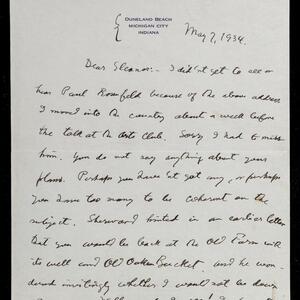 Duneland Beach
Michigan City
Indiana
May 7, 1934.
Dear Eleanor:- I didn't get to see or
hear Paul Rosenfeld because of the above address
I moved into the country about a week before
the talk at the Arts Club. Sorry I had to miss
him. You do not say anything about your
plans. Perhaps you haven't got any, or perhaps
you have too many to be coherent on the
subject. Sherwood hinted in an earlier letter
that you would be back at the Old Farm with
its well and Old Oaken Bucket, and he won-
dered invitingly whether I would not be down